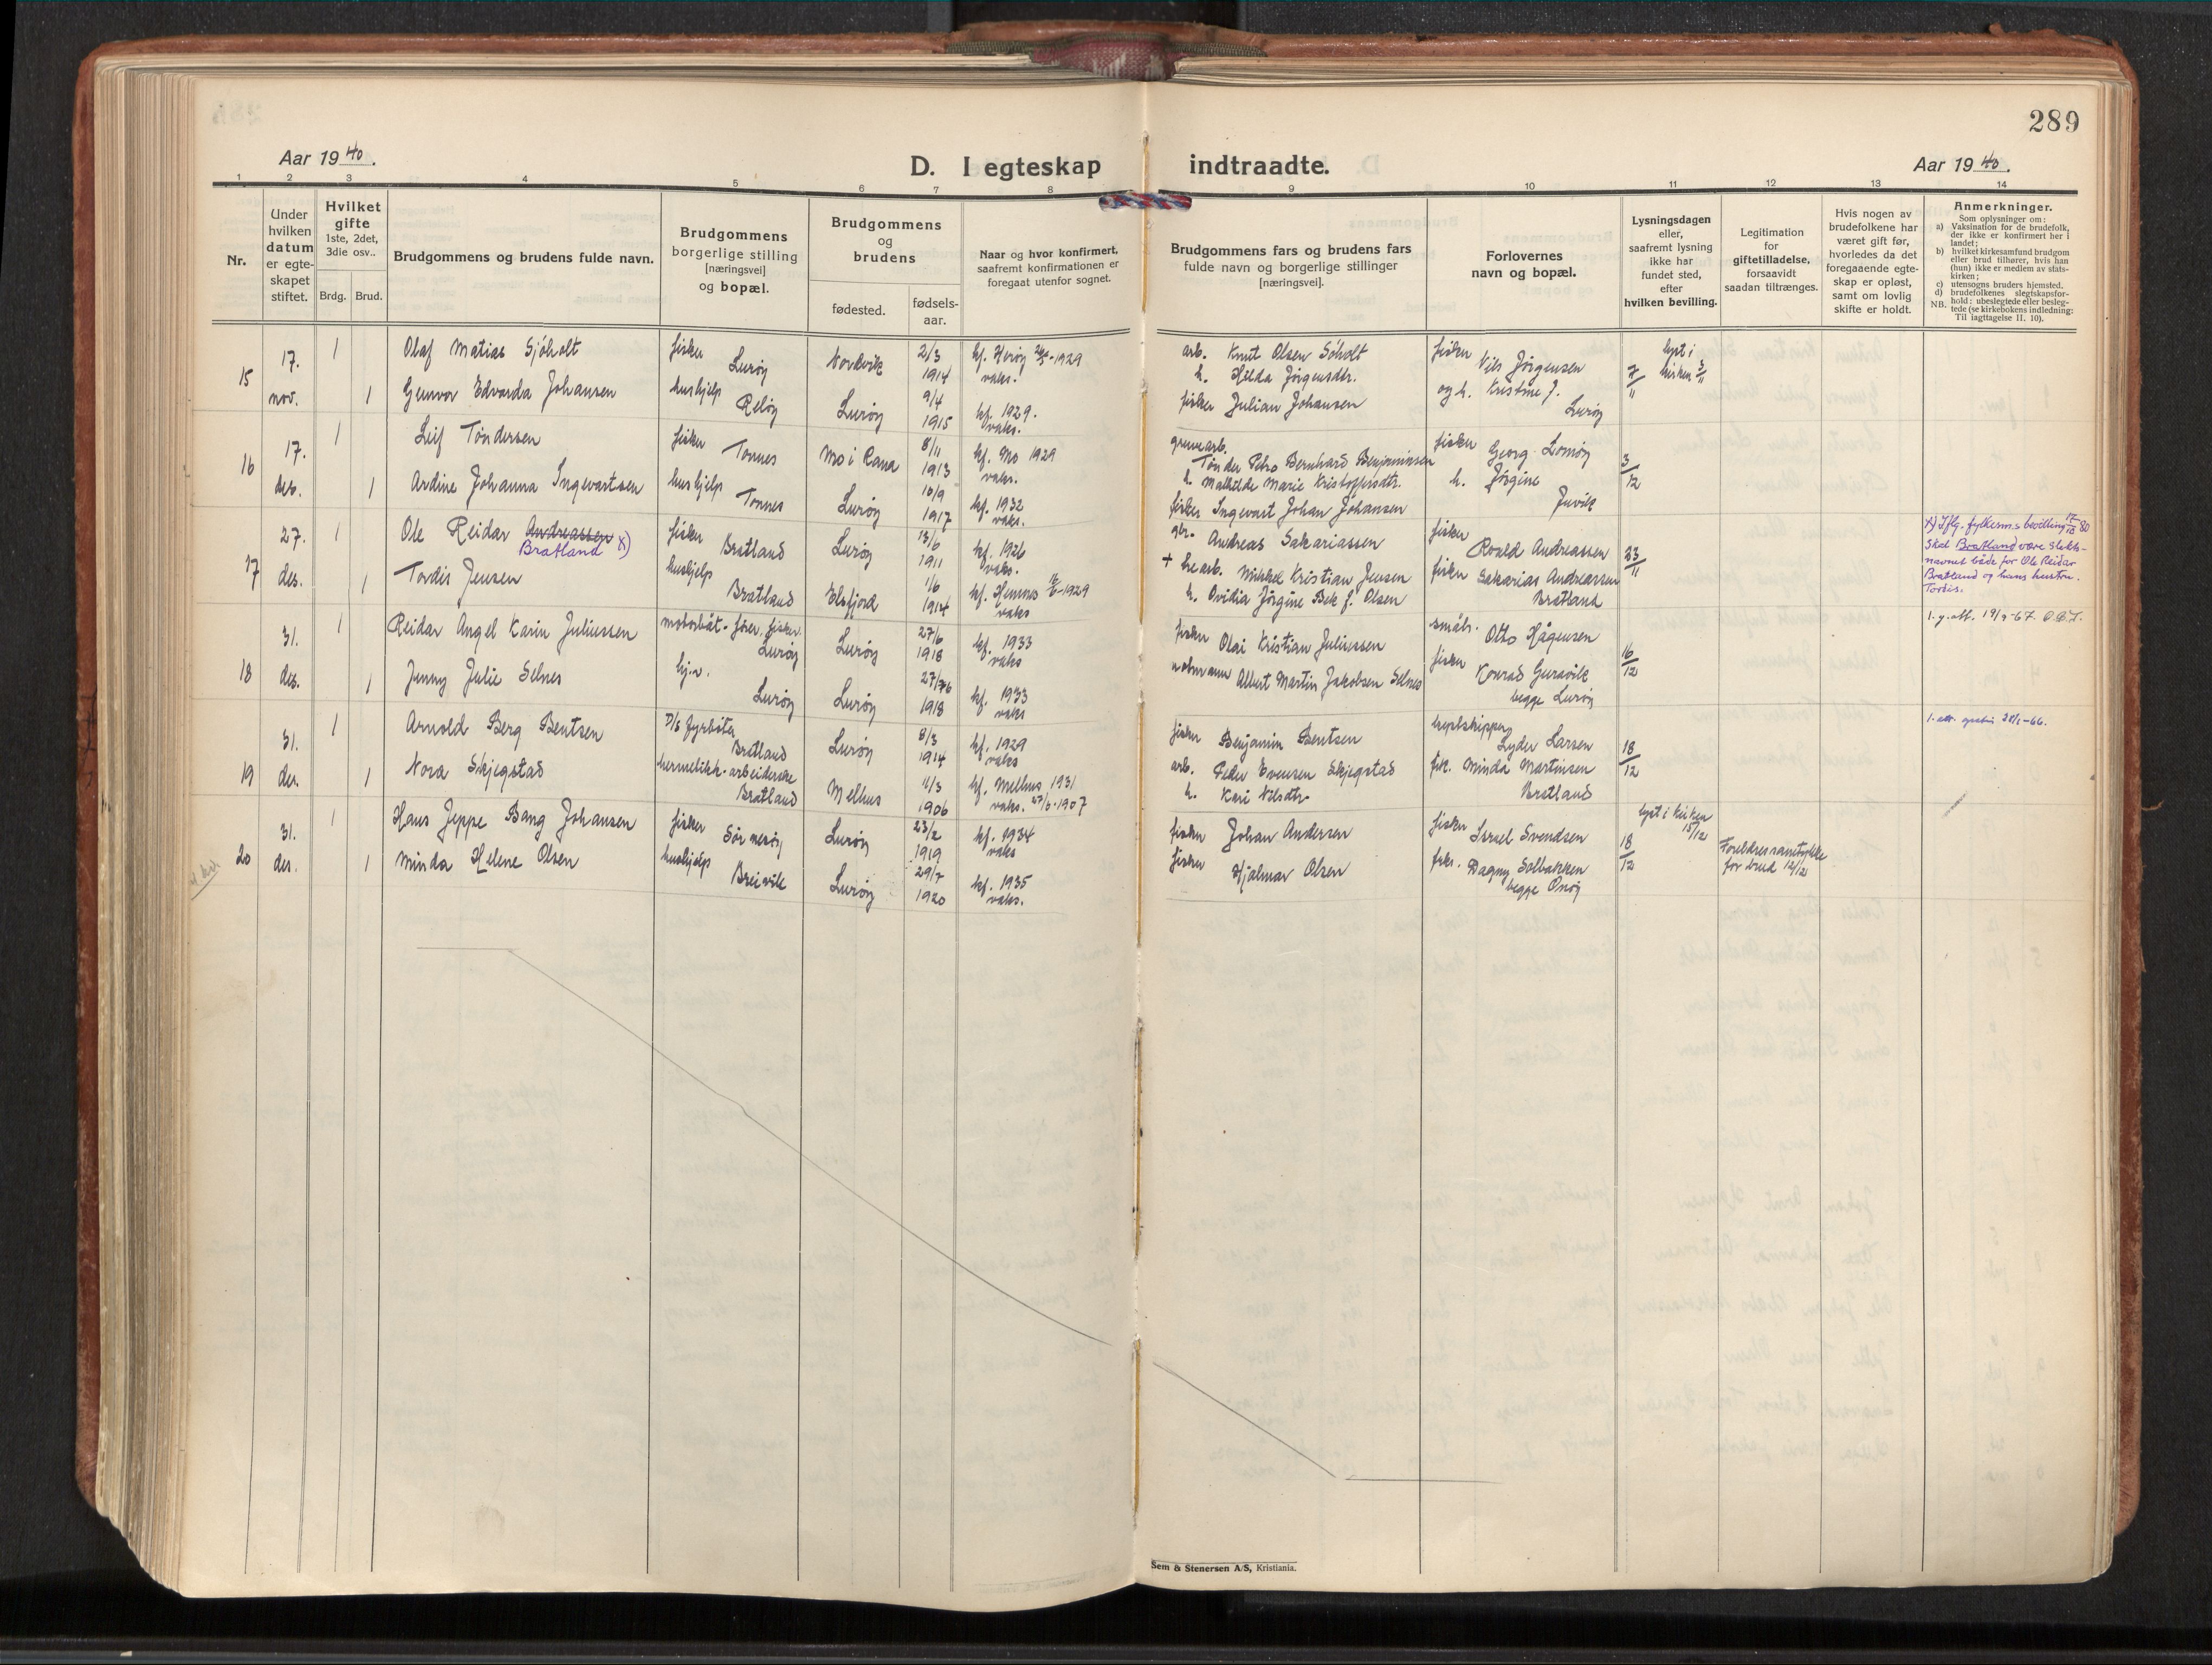 289
Aar 1940.
D. I egteskap indtraadte.
Aar 1940.
1 2 3 4 5 6 7 8 9 10 11 12 13 14
Nr.
Under
hvilken
datum
er egte-
skapet
stiftet.
Hvilket
gifte
1ste, 2det,
3die osv..
Brdg. Brud.
Brudgommens og brudens fulde navn.
Brudgommens
borgerlige stilling
[næringsvei]
og bopæl.
Brudgommens
og
brudens
fødested.
fødsels-
aar.
Naar og hvor konfirmert,
saafremt konfirmationen er
foregaat utenfor sognet.
Brudgommens fars og brudens fars
fulde navn og borgerlige stillinger
[næringsvei].
Forlovernes
navn og bopæl.
Lysningsdagen
eller,
saafremt lysning
ikke har
fundet sted,
efter
hvilken bevilling.
Legitimation
for
giftetilladelse,
forsaavidt
saadan tiltrænges.
Hvis nogen av
brudefolkene har
været gift før,
hvorledes da det
foregaaende egte-
skap er opløst,
samt om lovlig
skifte er holdt.
Anmerkninger.
Som oplysninger om:
a) Vaksination for de brudefolk,
der ikke er konfirmert her i
landet;
b) hvilket kirkesamfund brudgom
eller brud tilhører, hvis han
(hun) ikke er medlem av stats-
kirken;
c) utensogns bruders hjemsted.
d) brudefolkenes slegtskapsfor-
hold: ubeslegtede eller besleg-
NB. tede (se kirkebokens indledning:
Til iagttagelse II. 10).
15 17. nov. 1 Olaf Matias Sjøholt fisker Lurøy Nordvik 2/3 1914 kf. Herøy 1929 vaks. arb. Knut Olsen Søholt h. Hilda Jørgensdtr. fisker Nils Jørgensen 7/11 lyst i kirken 3/11
1 Gunvor Edvarda Johansen hushjelp Reløy Lurøy 9/4 1915 kf. 1929. vaks. fisker Julian Johansen og h. Kristine J. Lurøy
16 17. des. 1 Leif Tøndersen fisker Tonnes Mo i Rana 8/11 1913 kf. Mo 1929 vaks. gruvearb. Tønder Petro Bernhard Benjaminsen h. Mathilde Marie Kristoffersdtr. fisker Georg Lomøy 3/12
1 Ardine Johanna Ingevartsen hushjelp Tonnes Lurøy 10/9 1917 kf. 1932 vaks. fisker Ingevart Johan Johansen h. Jørgine Juvik
17 27. des. 1 Ole Reidar Andreassen Bratland x) fisker Bratland Lurøy 13/6 1911 kf. 1926 vaks. gbr. Andreas Sakariassen fisker Roald Andreassen 23/11
1 Tordis Jensen hushjelp Bratland Elsfjord 1/6 1914 kf. Hemnes 1929 vaks + Mikkel Kristian Jensen h. Ovidia Jørgine Bek f. Olsen fisker Sakarias Andreassen Bratland
x) Iflg. fylkesm.s bevilling
skal Bratland være slekts-
navnet både for Ole Reidar
Bratland og hans hustru
Tordis.
18 31. des. 1 Reidar Angel Karin Juliussen motorbåt-fører, fisker Lurøy Lurøy 27/6 1918 kf. 1933 vaks fisker Olai Kristian Juliussen småbr. Otto Hågensen 16/12
1 Jenny Julie Selnes hj.v. Lurøy Lurøy 1918 kf. 1933 vaks Albert Martin Jakobsen Selnes fisker Konrad Guravik begge Lurøy
19 31. des. 1 Arnold Berg Bentsen D/S fyrbøter Bratland Lurøy 8/3 1914 kf. 1929 vaks fisker Benjamin Bentsen Lyder Larsen 18/12
1 Nora Skjegstad hermetikk-arbeiderske Bratland Melhus 11/3 1906 kf. Melhus 1931 vaks. 1907 arb. Peder Evensen Skjegstad h. Kari Nilsdtr. frk. Minda Martinsen Bratland
20 31. des. 1 Hans Jeppe Bang Johansen fisker Sør nesøy Lurøy 23/2 1919 kf. 1934 vaks fisker Johan Andersen fisker Israel Svendsen 18/12 lyst i kirken 15/12
1 Minda Helene Olsen hushjelp Breivik Lurøy 29/7 1920 kf. 1935 vaks. fisker Hjalmar Olsen frk. Dagny Solbakken begge Onøy Foreldresamtykke for brud 12/12
Sem & Stenersen A/S, Kristiania.